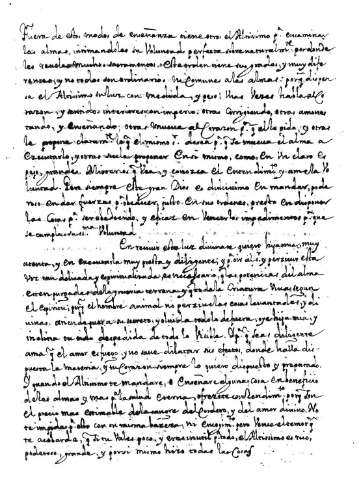 Fuera de estos modos de enseñanza tiene otro el Altisimo pª encaminar
las almas, intimandoles su Voluntad perfecta sobrenaturalmte por donde
les revela muchos sacramentos. Este orden tiene sus grados, y muy dife
rencias y no todos son ordinarios, ni comunes a las almas: porq dispen
sa el Altisimo su luz con medida, y peso: Unas Veces habla al Co
razon, y sentidos interiores con imperio; otras Corrigiendo, otras amones
tando, y Enseñando: otras mueve al Corazon pª q el lo pida, y otras
le propone claramte lo q el mismo Sr desea, pª q se mueva el alma a
Executarlo, y otras suele proponer En si mismo, como En Un claro Es
pejo, grandes Misterios q Vea y conozca el Entendimto y ame la Vo
luntad. Pero siempre este gran Dios es dulcisimo En mandar, pode
roso En dar fuerzas pª obedecer, justo En sus ordenes, presto En disponer
las Cosas pª ser obedecido, y eficaz En Vencer los impedimentos pª que
se cumpla su sma Voluntad.
En recivir esta luz divina te quiero hija mia, muy
atenta, y en Executarla muy presta y diligente; y pª oir al Sr y percivir esta
Voz tan delicada y espiritualizada es necesario q las potencias del alma
esten purgadas de la groseria terrena y q toda la Criatura Viva segun
el Espiritu; porq el hombre animal no percive las cosas levantadas y di
vinas. Atiende pues a su secreto, y olvida todo lo de fuera, oye hija mia, y
inclina tu oido despedida de todo lo Visible. Y pª q seas diligente
ama, q el amor es fuego, y no save dilatar sus efectos, donde halla dis
puesta la materia, y tu Corazon siempre lo quiero dispuesto y preparado.
Y quando el Altisimo te mandare, o Enseñare alguna cosa En beneficio
de las almas, y mas pª su salud Eterna, ofrecete con Rendimto, porq son
el precio mas estimable de la sangre del Cordero, y del amor divino. No
te impidas pª esto con tu misma baxeza, ni Encogimto, pero Vence el temor q
te acobarda, q si tu Vales poco, y eres inutil pª todo, el Altisimo es rico,
poderoso, grande, y por si mismo hizo todas las Cosas